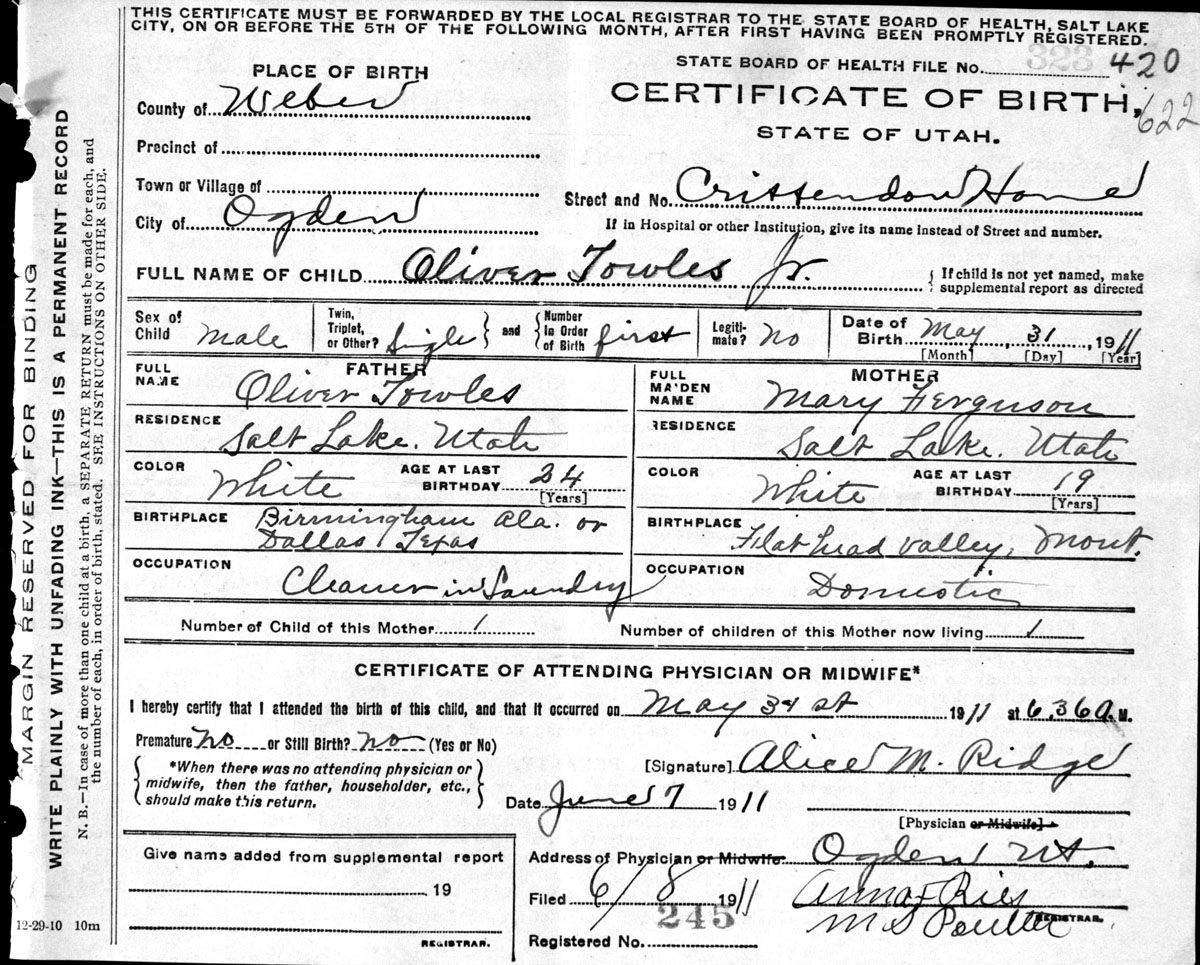 THIS CERTIFICATE MUST BE FORWARDED BY THE LOCAL REGISTRAR TO THE STATE BOARD OF HEALTH, SALT LAKE
CITY, ON OR BEFORE THE 5TH OF THE FOLLOWING MONTH, AFTER FIRST HAVING BEEN PROMPTLY REGISTERED.
323
STATE BOARD OF HEALTH FILE No. 420
CERTIFICATE OF BIRTH,
622
STATE OF UTAH.
PLACE OF BIRTH
County of Weber
Precinct of
Town or Village of
City of Ogden
Street and No. Crittendon Home
If in Hospital or other Institution, give its name instead of Street and number.
FULL NAME OF CHILD Oliver Towles Jr.
{ If child is not yet named, make
supplemental report as directed
Sex of Child Male
Twin, Triplet, or Other? Single } and { Number in Order of Birth first
Legitimate? No
Date of Birth May, 31, 1911
[Month] [Day] [Year]
FATHER
FULL NAME Oliver Towles
RESIDENCE Salt Lake. Utah
COLOR White AGE AT LAST BIRTHDAY 24
[Years]
BIRTHPLACE Birmingham Ala. or
Dallas, Texas
OCCUPATION Cleaner in Laundry
MOTHER
FULL MAIDEN NAME Mary Ferguson
RESIDENCE Salt Lake. Utah
COLOR White AGE AT LAST BIRTHDAY 19
[Years]
BIRTHPLACE Flat head valley, Mont.
OCCUPATION Domestic
Number of Child of this Mother 1
Number of children of this Mother now living 1
CERTIFICATE OF ATTENDING PHYSICIAN OR MIDWIFE*
I hereby certify that I attended the birth of this child, and that it occurred on May 31 st 1911 at 6,36 A. M.
Premature No or Still Birth? No (Yes or No)
{ *When there was no attending physician or
midwife, then the father, householder, etc.,
should make this return. }
[Signature] Alice M. Ridge
Date June 7 1911
[Physician or Midwife]
Give name added from supplemental report
19
REGISTRAR.
Address of Physician or Midwife Ogden Ut.
Filed 6/8 1911
Anna F Ries
M S Poulter
REGISTRAR.
245
Registered No.
12-29-10 10m
MARGIN RESERVED FOR BINDING
WRITE PLAINLY WITH UNFADING INK—THIS IS A PERMANENT RECORD
N. B.—In case of more than one child at a birth, a SEPARATE RETURN must be made for each, and
the number of each, in order of birth, stated. SEE INSTRUCTIONS ON OTHER SIDE.